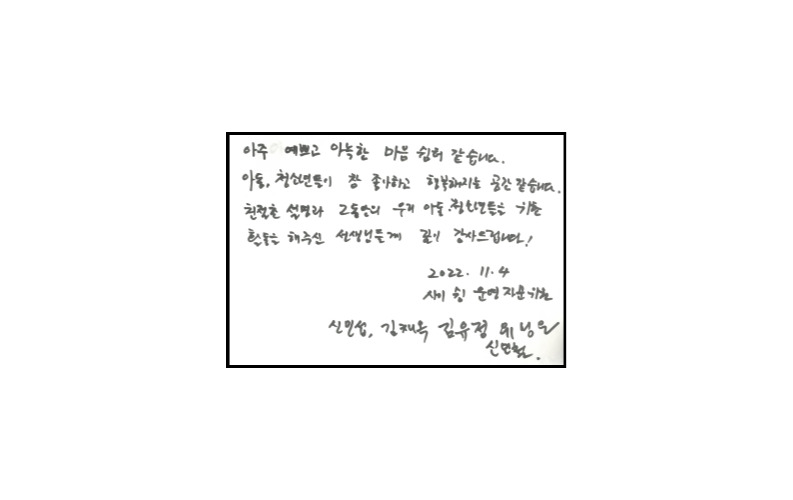 아주 예쁘고 아늑한 마음 쉼터 같습니다.
아동, 청소년들이 참 좋아하고 행복해지는 공간 같습니다.
친절한 설명과 그동안의 우리 아동.청소년들을 위한
헌신을 해주신 선생님들께 깊이 감사드립니다!
2022. 11. 4
사이 쉼 운영
신민섭, 김재옥 김유정